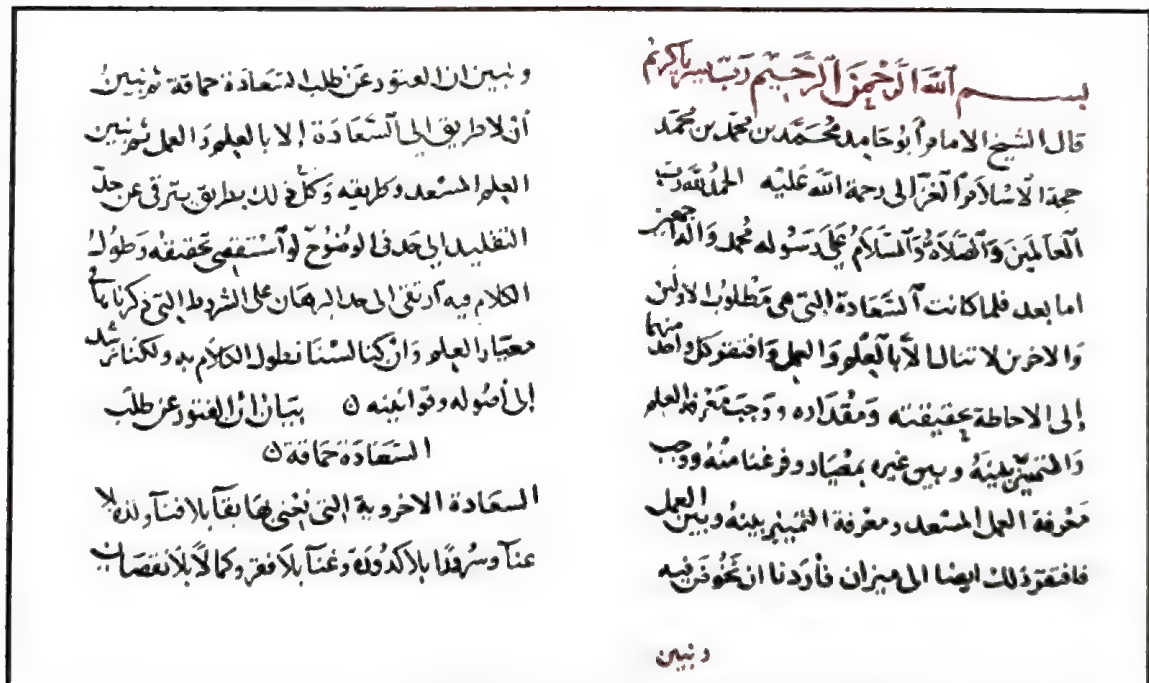 بسم الله الرحمن الرحيم رب يسر يا كريم
قال الشيخ الامام أبو حامد محمد بن محمد بن محمد
حجة الاسلام الغزالى رحمة الله عليه الحمد لله رب
العالمين والصلاة والسلام على رسوله محمد واله اجمعين
اما بعد فلما كانت السعادة التى هى مطلوب الاولين
والاخرين لا تنال الا بالعلم والعمل وافتقر كل واحد منهما
إلى الاحاطة بحقيقته ومقداره ووجب معرفة العلم
والتمييز بينه وبين غيره بمعيار وفرغنا منه ووجب
معرفة العمل المسعد ومعرفة التمييز بينه وبين العمل
فافتقر ذلك ايضا الى ميزان فأردنا ان نخوض فيه
ونبين
ونبين ان الفتور عن طلب السعادة حماقة ثم نبين
أن لا طريق الى السعادة إلا بالعلم والعمل ثم نبين
العلم المسعد وطريقه وكل ذلك بطريق يترقى عن حد
التقليد إلى حد الوضوح لو استقصى تحقيقه وطول
الكلام فيه ارتقى الى حد البرهان على الشروط التى ذكرناها فى
معيار العلم وان كنا لسنا نطول الكلام به ولكنا نرشد
إلى أصوله وقوانينه ن بيان ان الفتور عن طلب
السعادة حماقة ن
السعادة الاخروية التى نعنى بها بقآ بلا فنآ ولذة بلا
عنآ وسرورا بلا كدورة وغنآ بلا فقر وكمالا بلا نقصان